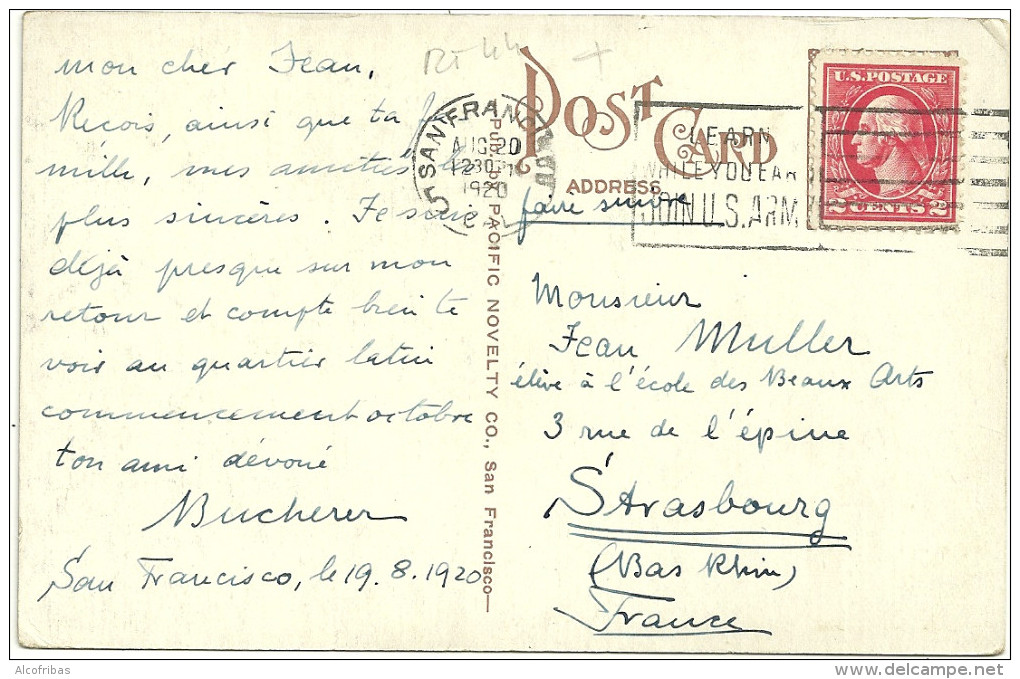 mon cher Jean,
Reçois, ainsi que ta fa
mille, mes amitiés les
plus sincères. Je suis
déjà presque sur mon
retour et compte bien te
voir au quartier latin
commencement octobre
ton ami dévoué
Bucherer
San Francisco, le 19.8.1920
POST CARD
ADDRESS
SAN FRANC
AUG 20
1230
1920
CAL
LEARN
WHILE YOU EAR
JOIN U.S. ARM
U.S. POSTAGE
2 CENTS 2
PACIFIC NOVELTY CO., San Francisco
faire suivre
Monsieur
Jean Muller
élève à l'école des Beaux Arts
3 rue de l'épine
Strasbourg
(Bas Rhin)
France
Alcofribas
www.delcampe.net